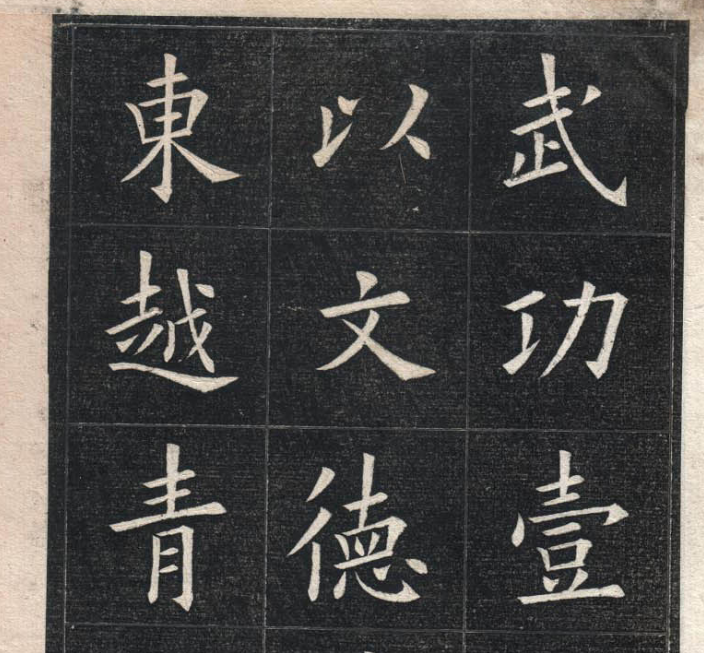 武功壹
以文德
東越青